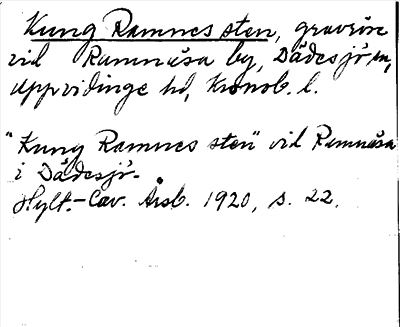 Kung Ramnes sten, gravrör
vid Ramnåsa by, Dädesjö sn,
Uppvidinge hd, Kronob. l.
"Kung Ramnes sten" vid Ramnåsa
i Dädesjö.
Hylt.-Cav. Årsb. 1920, s. 22.